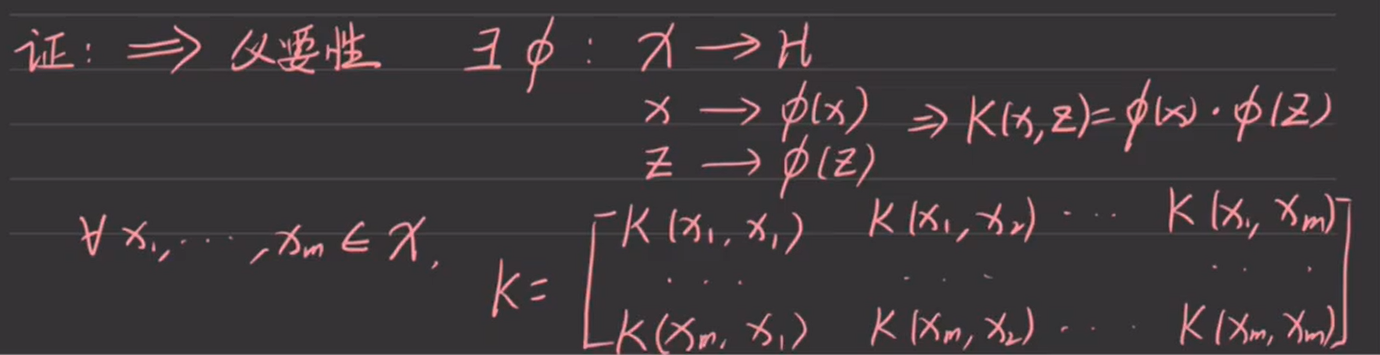 证: ⇒ 必要性 ∃ φ : X → H
x → φ(x) ⇒ K(x,z)=φ(x)·φ(z)
z → φ(z)
∀ x₁, ···, xₘ ∈ X,
K= [ K(x₁, x₁) K(x₁, x₂) ··· K(x₁, xₘ)
··· ··· ···
K(xₘ, x₁) K(xₘ, x₂) ··· K(xₘ, xₘ) ]